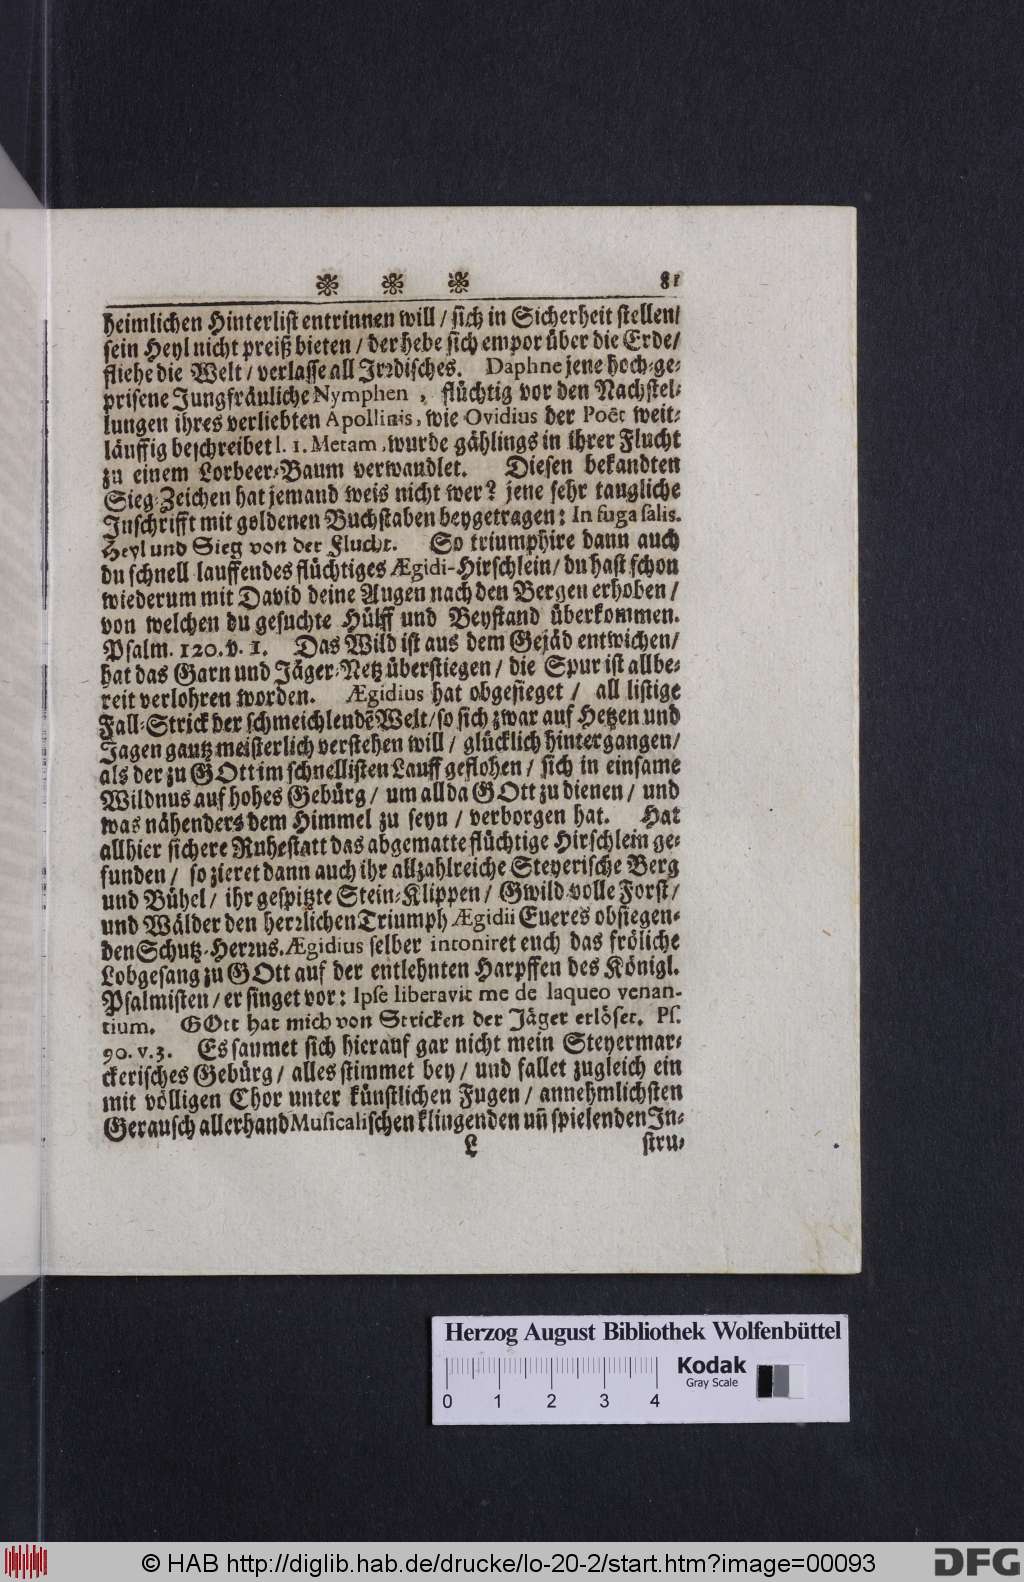 81
heimlichen Hinterlist entrinnen will / sich in Sicherheit stellen/
sein Heyl nicht preiß bieten / der hebe sich empor über die Erde/
fliehe die Welt / verlasse all Irꝛdisches. Daphne jene hoch-ge-
prisene Jungfräuliche Nymphen , flüchtig vor den Nachstel-
lungen ihres verliebten Apollinis, wie Ovidius der Poët weit-
läuffig beschreibet l. 1. Metam. wurde gählings in ihrer Flucht
zu einem Lorbeer-Baum verwandlet. Diesen bekandten
Sieg-Zeichen hat jemand weis nicht wer? jene sehr taugliche
Inschrifft mit goldenen Buchstaben beygetragen: In fuga salis.
Heyl und Sieg von der Flucht. So triumphire dann auch
du schnell lauffendes flüchtiges Ægidi-Hirschlein/ du hast schon
wiederum mit David deine Augen nach den Bergen erhoben /
von welchen du gesuchte Hülff und Beystand überkommen.
Psalm. 120. v. 1. Das Wild ist aus dem Gejäd entwichen/
hat das Garn und Jäger-Netz überstiegen / die Spur ist allbe-
reit verlohren worden. Ægidius hat obgesieget / all listige
Fall-Strick der schmeichlendẽ Welt/ so sich zwar auf Hetzen und
Jagen gantz meisterlich verstehen will / glücklich hintergangen/
als der zu GOtt im schnellisten Lauff geflohen / sich in einsame
Wildnus auf hohes Gebürg / um allda GOtt zu dienen / und
was nähenders dem Himmel zu seyn / verborgen hat. Hat
allhier sichere Ruhestatt das abgematte flüchtige Hirschlein ge-
funden / so zieret dann auch ihr allzahlreiche Steyerische Berg
und Bühel / ihr gespitzte Stein-Klippen / Gwild-volle Forst /
und Wälder den herꝛlichen Triumph Ægidii Eueres obsiegen-
den Schutz-Herꝛus. Ægidius selber intoniret euch das fröliche
Lobgesang zu GOtt auf der entlehnten Harpffen des Königl.
Psalmisten / er singet vor: Ipse liberavit me de laqueo venan-
tium. GOtt hat mich von Stricken der Jäger erlöset. Ps.
90. v. 3. Es saumet sich hierauf gar nicht mein Steyermar-
ckerisches Gebürg / alles stimmet bey / und fallet zugleich ein
mit völligen Chor unter künstlichen Fugen / annehmlichsten
Gerausch allerhand Musicalischen klingenden uñ spielenden In-
L stru-
Herzog August Bibliothek Wolfenbüttel
Kodak
Gray Scale
0 1 2 3 4
© HAB http://diglib.hab.de/drucke/lo-20-2/start.htm?image=00093
DFG